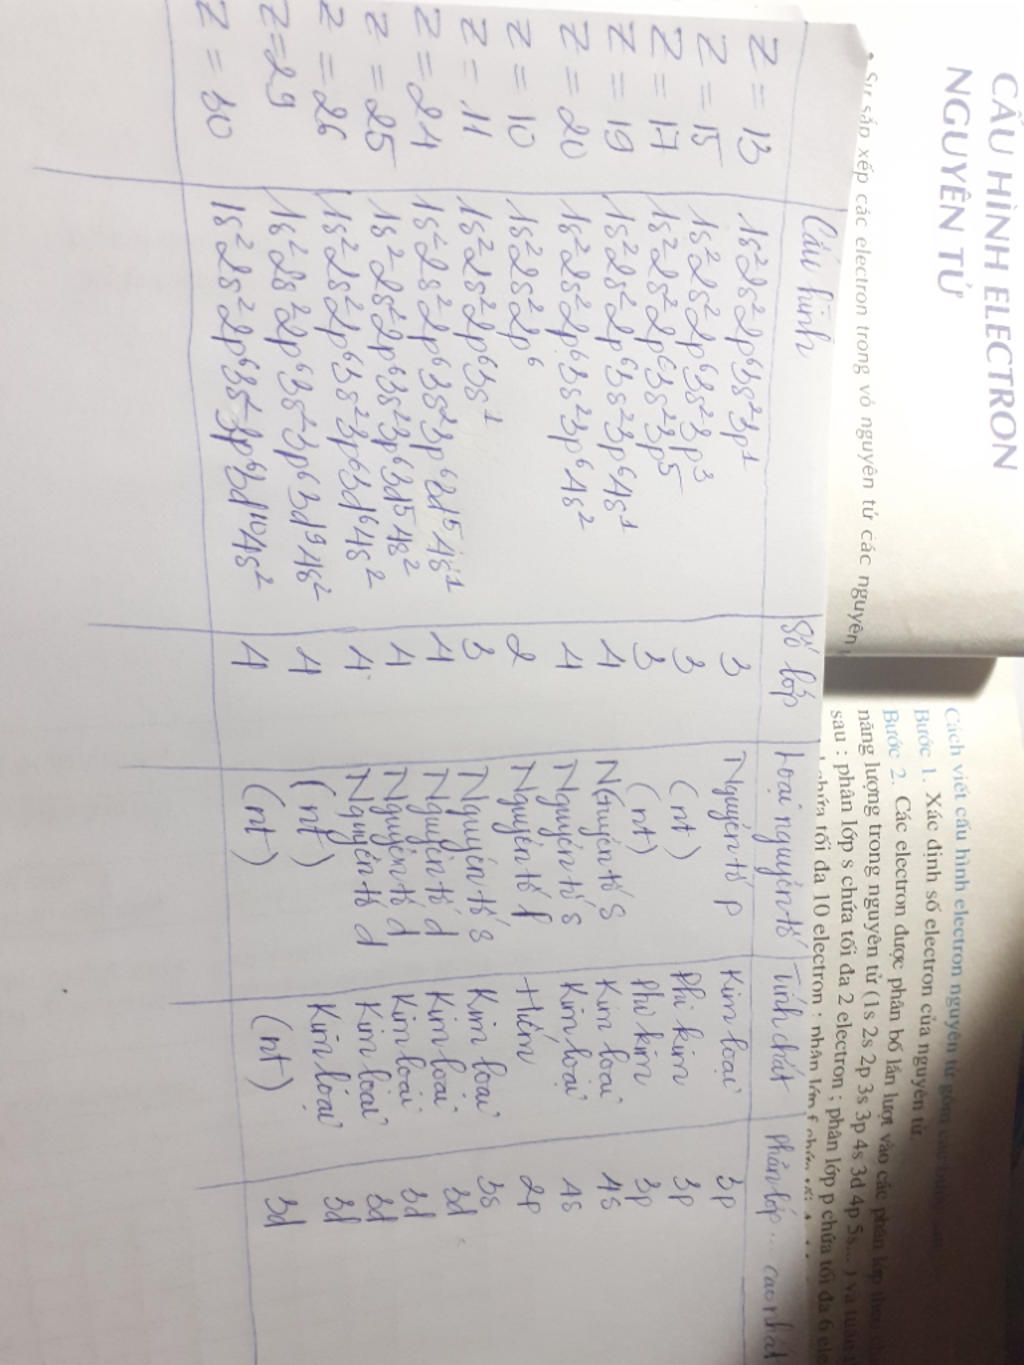 CẤU HÌNH ELECTRON
NGUYÊN TỬ
• Sự sắp xếp các electron trong vỏ nguyên tử các nguyên
Cách viết cấu hình electron nguyên tử gồm các bước
Bước 1. Xác định số electron của nguyên tử.
Bước 2. Các electron được phân bố lần lượt vào các phân lớp theo
năng lượng trong nguyên tử (1s 2s 2p 3s 3p 4s 3d 4p 5s... ) và tuân
sau : phân lớp s chứa tối đa 2 electron ; phân lớp p chứa tối đa 6
chứa tối đa 10 electron ; phân lớp f chứa tối đa
Cấu hình Số lớp Loại nguyên tố Tính chất Phân lớp... cao nhất
Z = 13 1s²2s²2p⁶3s²3p¹ 3 Nguyên tố p Kim loại 3p
Z = 15 1s²2s²2p⁶3s²3p³ 3 (nt) Phi kim 3p
Z = 17 1s²2s²2p⁶3s²3p⁵ 3 (nt) Phi kim 3p
Z = 19 1s²2s²2p⁶3s²3p⁶4s¹ 4 Nguyên tố s Kim loại 4s
Z = 20 1s²2s²2p⁶3s²3p⁶4s² 4 Nguyên tố s Kim loại 4s
Z = 10 1s²2s²2p⁶ 2 Nguyên tố p Hiếm 2p
Z = 11 1s²2s²2p⁶3s¹ 3 Nguyên tố s Kim loại 3s
Z = 24 1s²2s²2p⁶3s²3p⁶3d⁵4s¹ 4 Nguyên tố d Kim loại 3d
Z = 25 1s²2s²2p⁶3s²3p⁶3d⁵4s² 4 Nguyên tố d Kim loại 3d
Z = 26 1s²2s²2p⁶3s²3p⁶3d⁶4s² 4 Nguyên tố d Kim loại 3d
Z = 29 1s²2s²2p⁶3s²3p⁶3d⁹4s² 4 (nt) Kim loại 3d
Z = 30 1s²2s²2p⁶3s²3p⁶3d¹⁰4s² 4 (nt) (nt) 3d